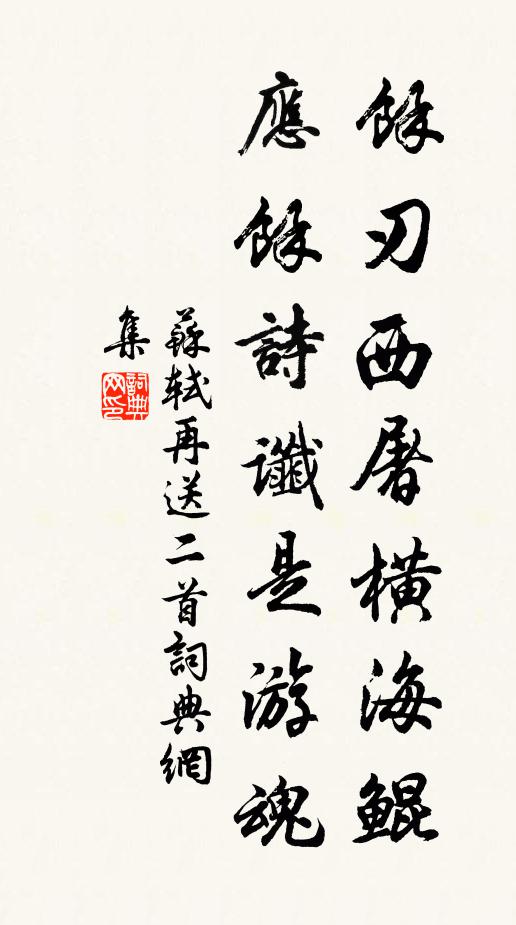 餘刃西屠橫海鯤
應餘詩讖是游魂
蘇軾再送二首詞典網
集
詞典网印